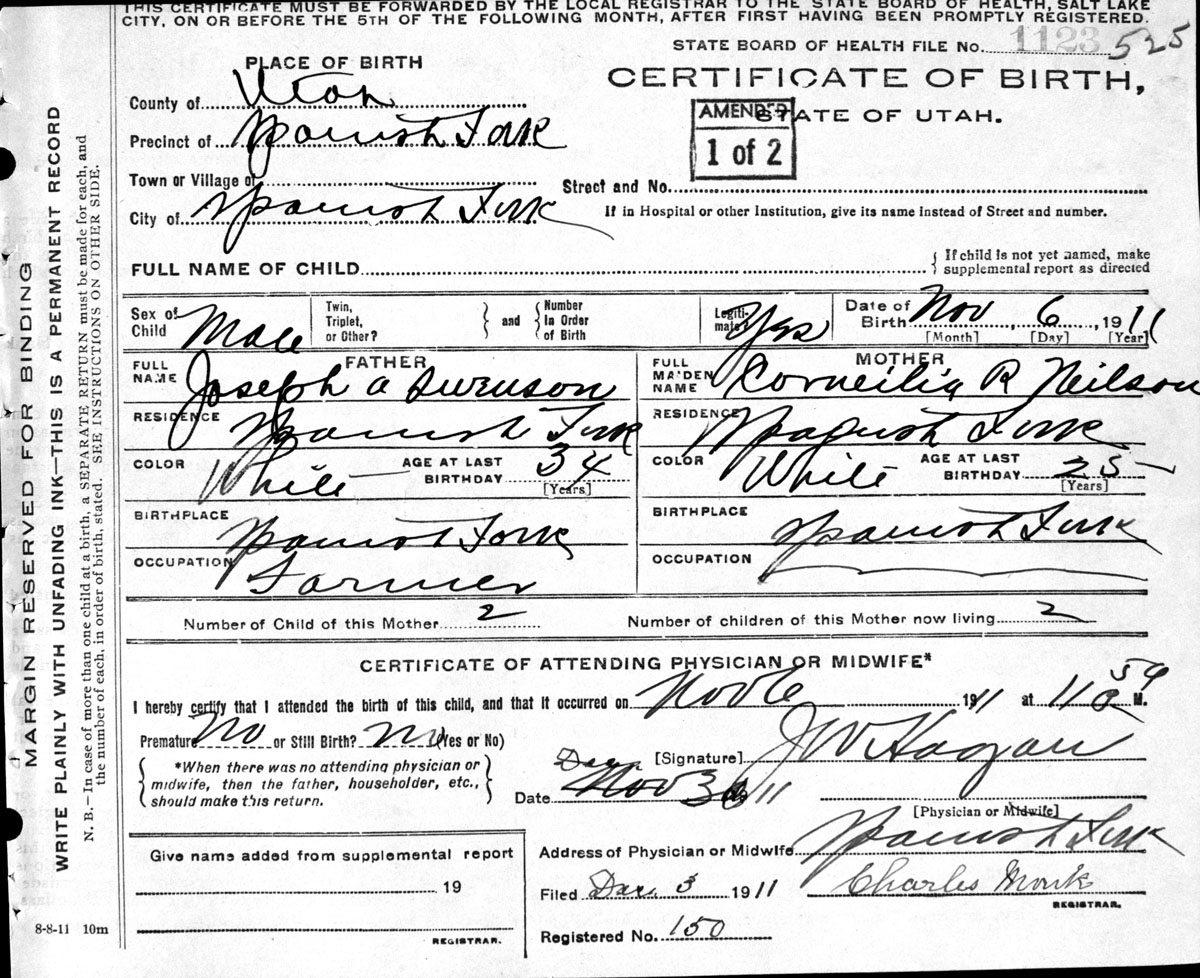 THIS CERTIFICATE MUST BE FORWARDED BY THE LOCAL REGISTRAR TO THE STATE BOARD OF HEALTH, SALT LAKE
CITY, ON OR BEFORE THE 5TH OF THE FOLLOWING MONTH, AFTER FIRST HAVING BEEN PROMPTLY REGISTERED.
STATE BOARD OF HEALTH FILE No. 1123 525
PLACE OF BIRTH
CERTIFICATE OF BIRTH,
County of Utah
AMENDED
STATE OF UTAH.
1 of 2
Precinct of Spanish Fork
Town or Village of
Street and No.
City of Spanish Fork
If in Hospital or other Institution, give its name instead of Street and number.
FULL NAME OF CHILD
{ If child is not yet named, make
supplemental report as directed
Sex of Child Male
Twin, Triplet, or Other? } and { Number In Order of Birth
Legiti- mate? Yes
Date of Birth Nov, 6, 1911
[Month] [Day] [Year]
FATHER
FULL NAME Joseph A Swenson
RESIDENCE Spanish Fork
COLOR White AGE AT LAST BIRTHDAY 34
[Years]
BIRTHPLACE Spanish Fork
OCCUPATION Farmer
MOTHER
FULL MAIDEN NAME Corneilia R Neilson
RESIDENCE Spanish Fork
COLOR White AGE AT LAST BIRTHDAY 25
[Years]
BIRTHPLACE Spanish Fork
OCCUPATION
Number of Child of this Mother 2
Number of children of this Mother now living 2
CERTIFICATE OF ATTENDING PHYSICIAN OR MIDWIFE*
I hereby certify that I attended the birth of this child, and that it occurred on Nov 6 1911 at 11 59 M.
Premature No or Still Birth? No (Yes or No)
{ *When there was no attending physician or
midwife, then the father, householder, etc.,
should make this return. }
[Signature] J W Hagan
Date Nov 30 1911
[Physician or Midwife]
Give name added from supplemental report
19
REGISTRAR.
Address of Physician or Midwife Spanish Fork
Filed Dec. 3 1911 Charles Monk
REGISTRAR.
Registered No. 150
8-8-11 10m
MARGIN RESERVED FOR BINDING
WRITE PLAINLY WITH UNFADING INK—THIS IS A PERMANENT RECORD
N. B.—In case of more than one child at a birth, a SEPARATE RETURN must be made for each, and
the number of each, in order of birth, stated. SEE INSTRUCTIONS ON OTHER SIDE.